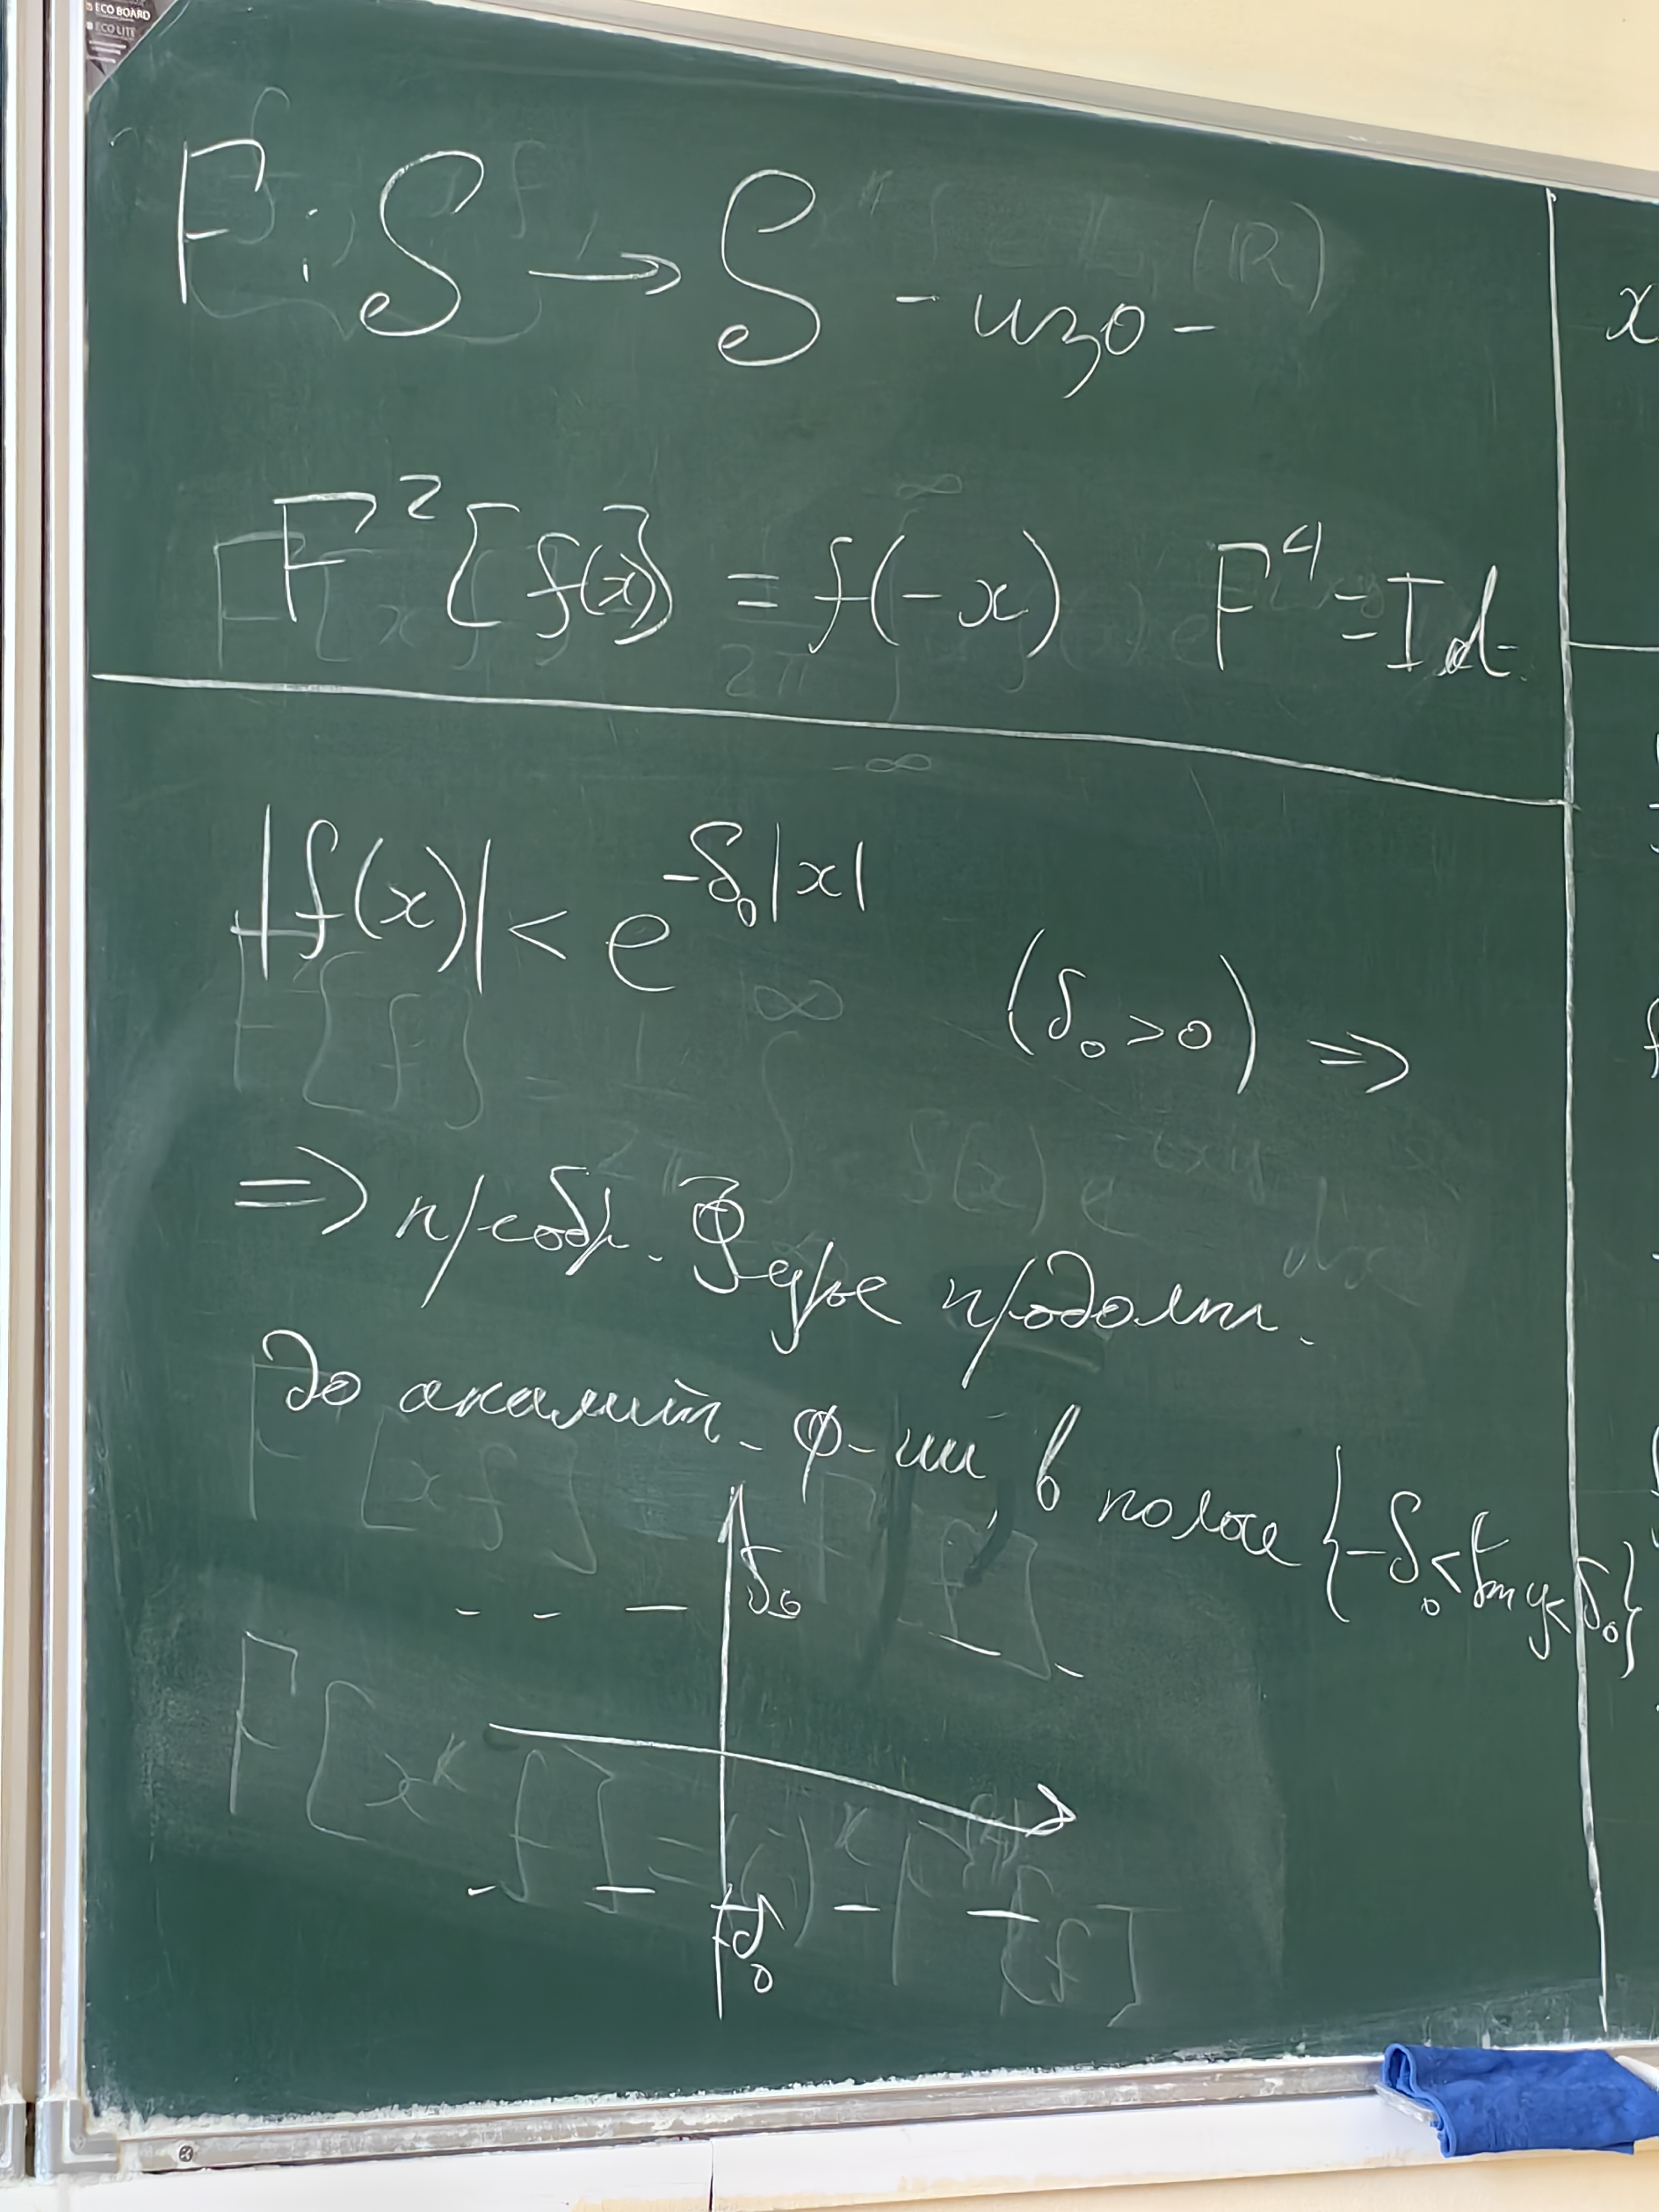 ECO BOARD
ECO LITE
F: S → S - изо -
F²[f(x)] = f(-x) F⁴ = Id
|f(x)| < e^{-δ₀|x|}
(δ₀ > 0) ⇒
⇒ преобр. Фурье продолж.
до аналит. ф-ии, в полосе {-δ₀ < Im y < δ₀}
δ₀
-δ₀
x